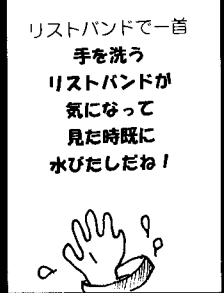 リストバンドで一首
手を洗う
リストバンドが
気になって
見た時既に
水びたしだね！